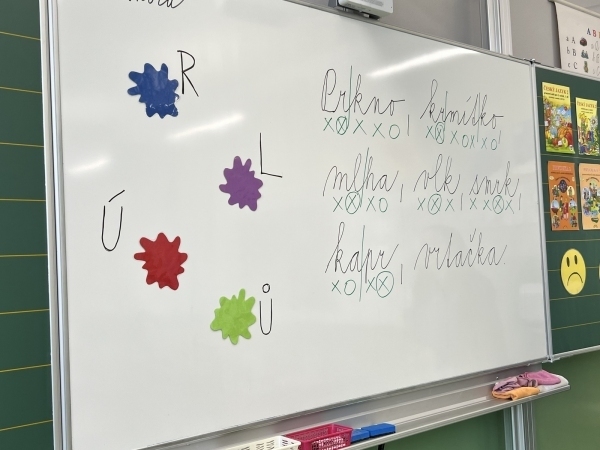 R
L
Ú
Ů
Prkno, krmítko,
x ⊗ x x o | x ⊗ x x o x x o |
mlha, vlk, smrk,
x ⊗ x o x ⊗ x | x x ⊗ x |
kapr, vrtačka.
x o x ⊗ |